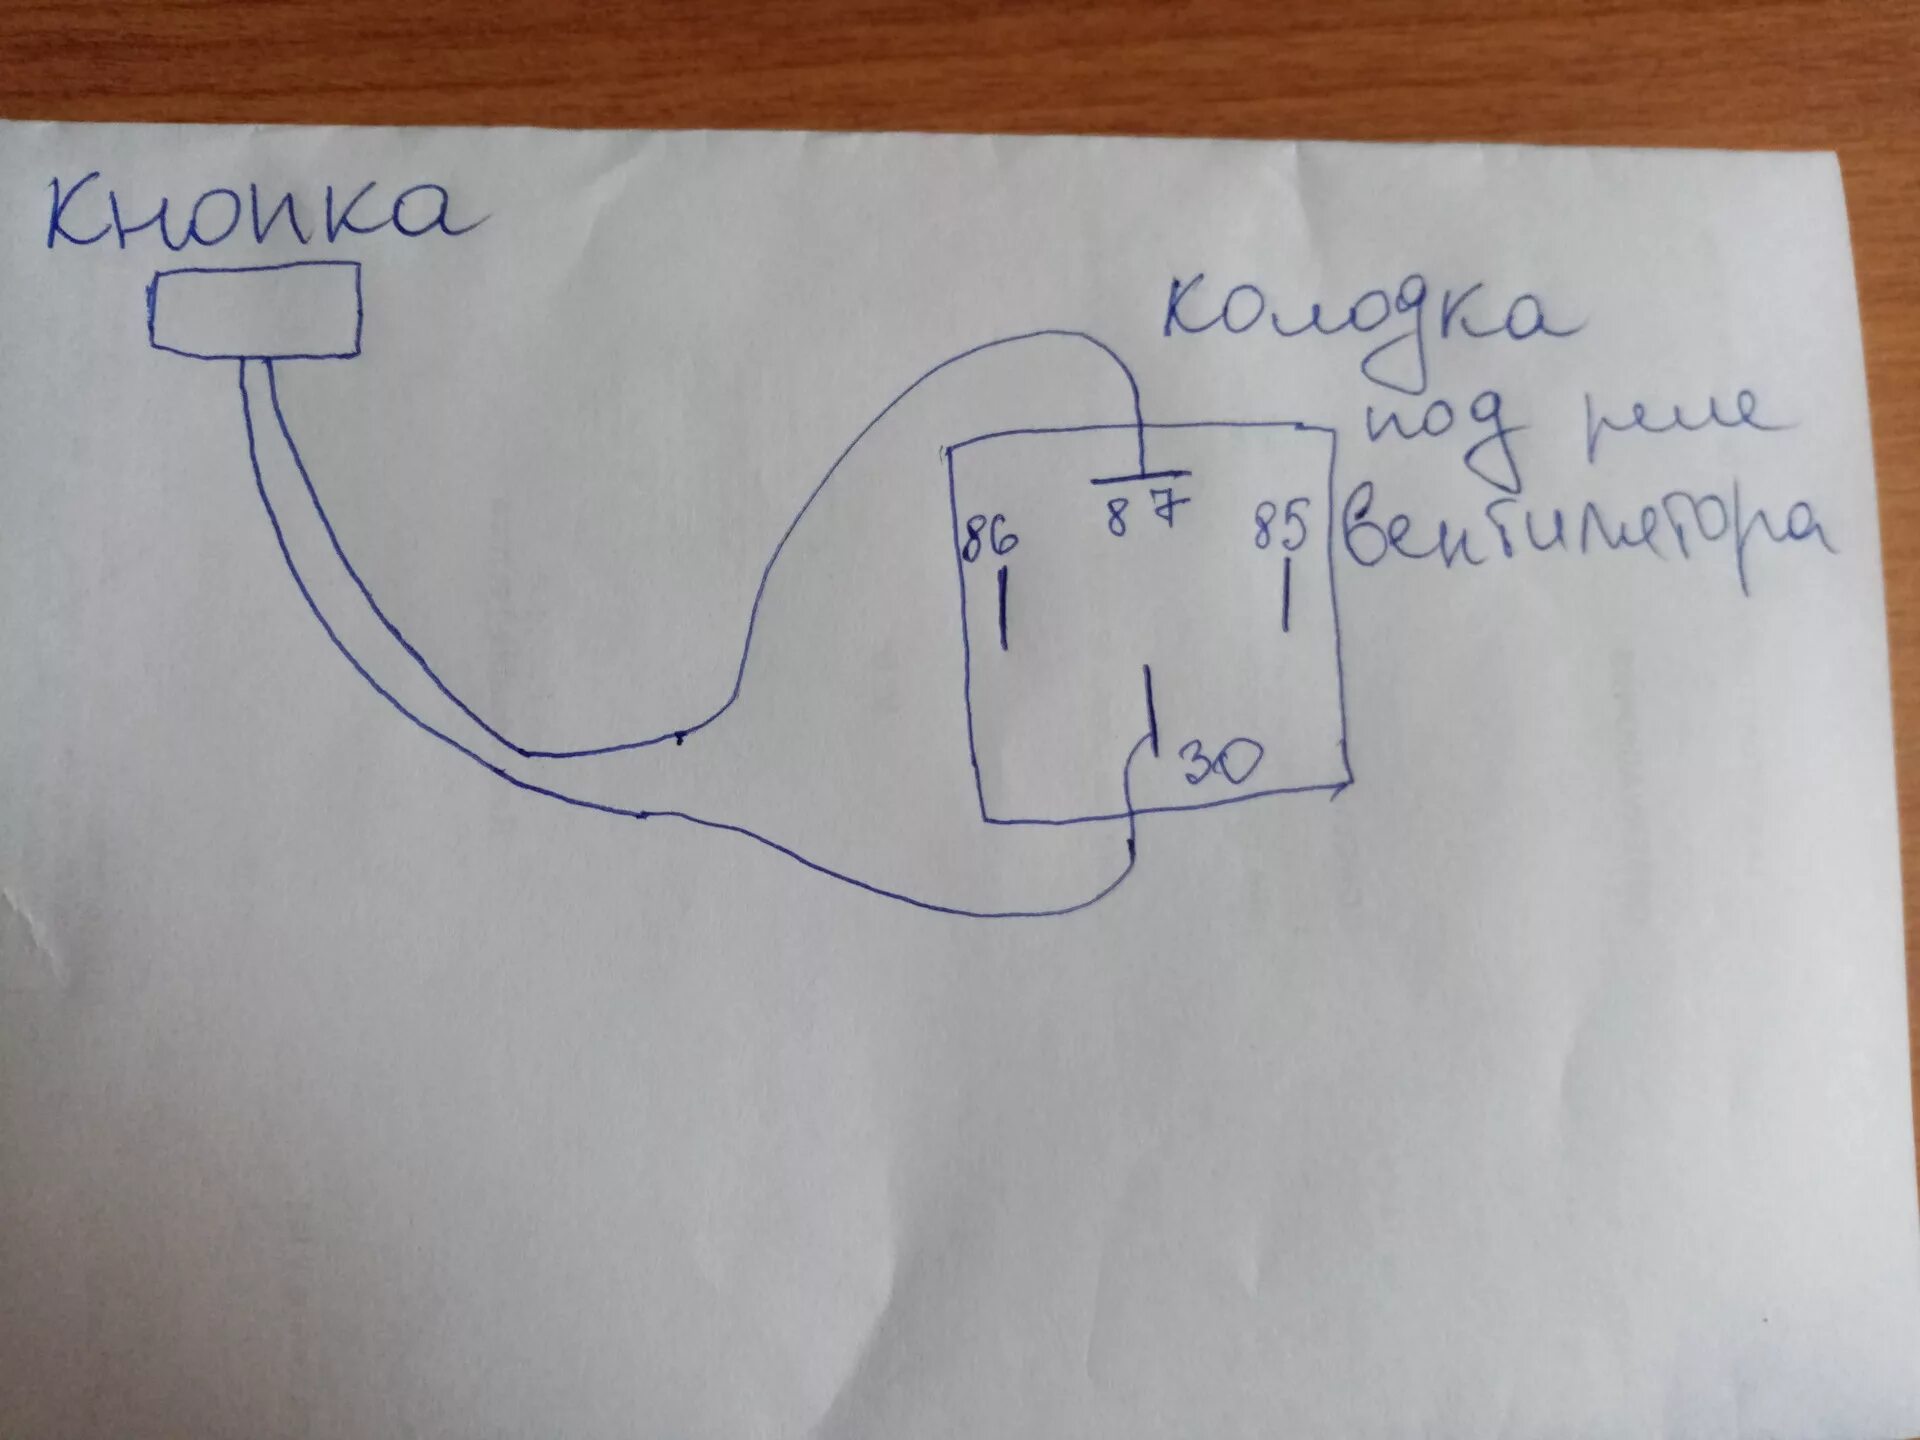 Кнопка
колодка
под реле
вентилятора
86
87
85
30